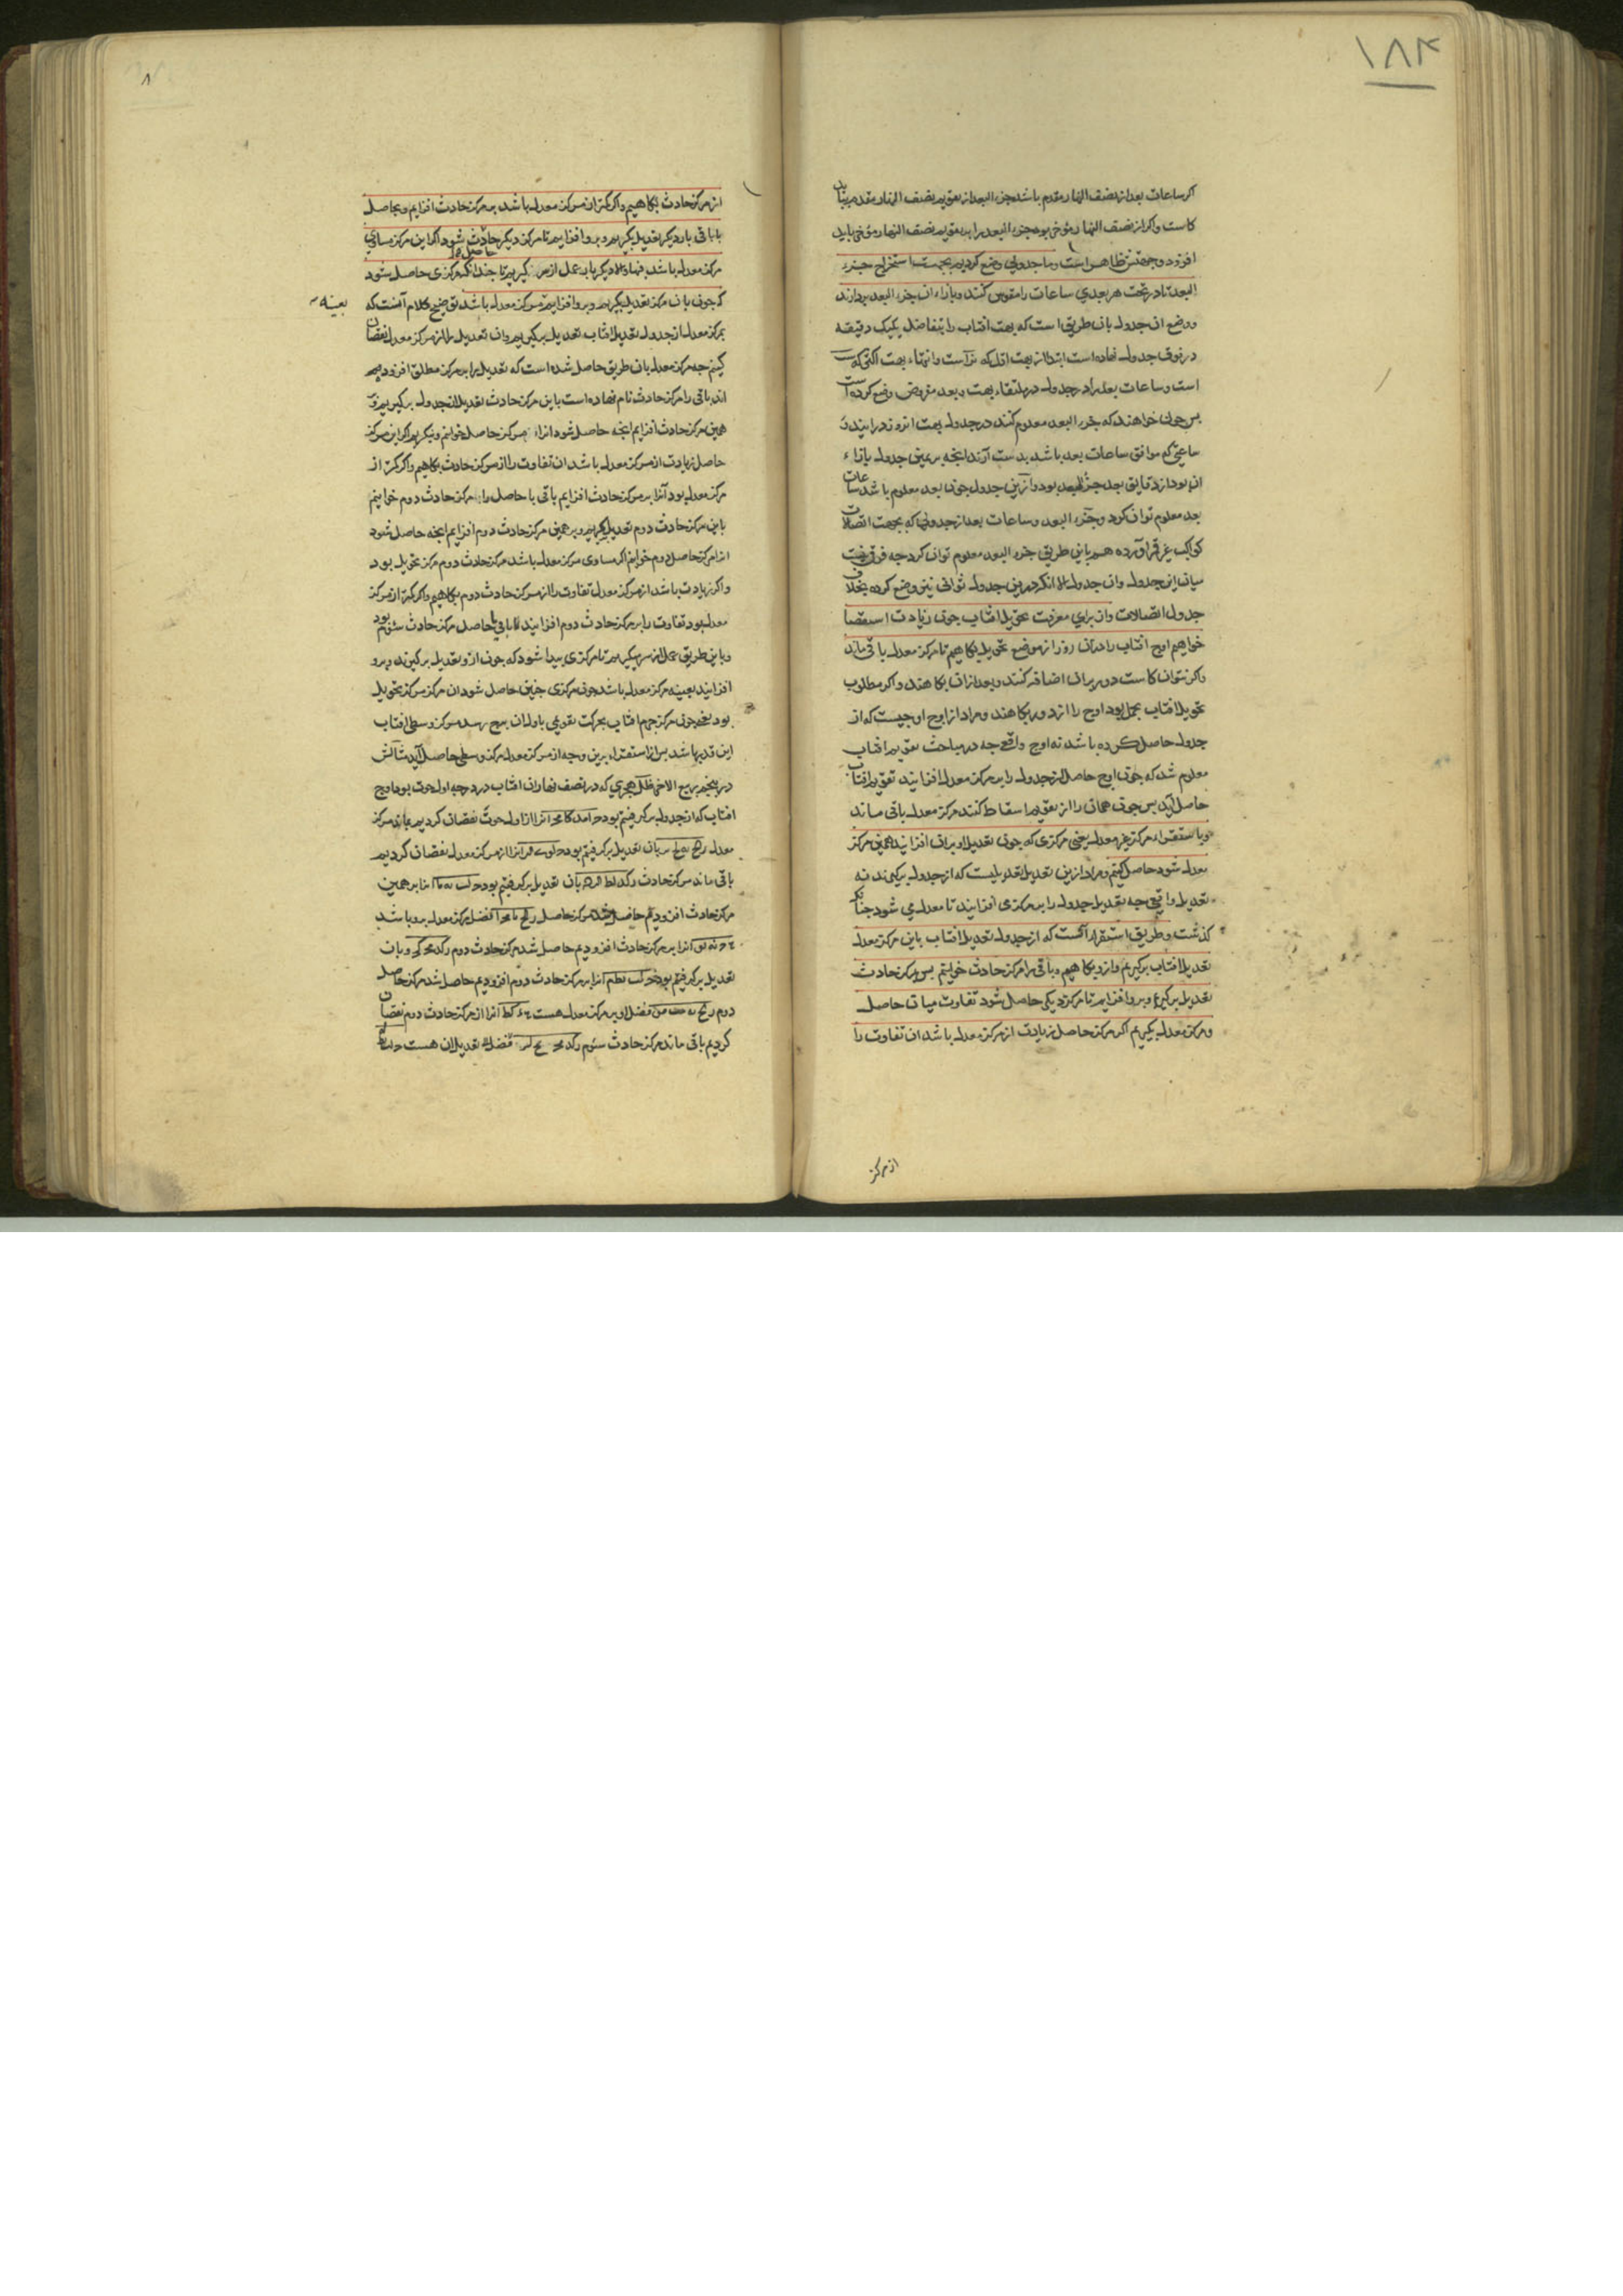 ۱۸۴
اکر ساعات بعد از نصف النهار مقدم باشد جزء البعد از تقویم نصف النهار مقدم بباید
کاست و اکر از نصف النهار مؤخر بود جزء البعد را بر تقویم نصف النهار مؤخر باید
افزود و جهتش ظاهر است و ما جدولی وضع کردیم بجهت استخراج جزء
البعد تا در تحت هر بعدی ساعات را مقوس کنند و بازاء ان جزء البعد بردارند
ووضع ان جدول بان طریق است که بهت افتاب را بتفاضل یکیک دقیقه
در فوق جدول نهاده است ابتدا از بهت اقل که است وانتهاء بهت اکثر که
است و ساعات بعد را در جدول در ملتقاء بهت و بعد مفروض وضع کرده است
بس جون خواهند که جزء البعد معلوم کنند در جدول بهت انروز درایند و
ساعتی که موافق ساعات بعد باشد بدست آرند انجه بر یمین جدول بازاء
ان بود از دقایق بعد جزء البعد بود و ازین جدول جون بعد معلوم باشد ساعات
بعد معلوم توان کرد و جزء البعد و ساعات بعد از جدولی که بجهت اتصالات
کواکب غیر قمر آورده هم باین طریق جزء البعد معلوم توان کرد جه فرق نیست
میان این جدول وان جدول الا انکه درین جدول ثوانی نیز وضع کرده بخلاف
جدول اتصالات واز برای معرفت تحویل افتاب جون زیادت استقصا
خواهیم اوج افتاب را دران روز از موضع تحویل بکاهیم تا مرکز معدل باقی ماند
واکر نتوان کاست دور بران اضافه کنند و بعد ازان بکاهند و اکر مطلوب
تحویل افتاب بحمل بود اوج را از دور بکاهند و مراد از اوج اوجیست که از
جدول حاصل کرده باشد نه اوج واقع جه در مباحث تقویم افتاب
معلوم شد که جون اوج حاصل از جدول را بر مرکز معدل افزایند تقویم افتاب
حاصل آید بس جون همان را از تقویم اسقاط کنند مرکز معدل باقی ماند
و باستقراء مرکز غیر معدل یعنی مرکزی که جون تعدیل او بران افزایند همین مرکز
معدل شود حاصل کنیم و مراد ازین تعدیل تعدیلیست که از جدول برکیرند نه
تعدیل واقع جه تعدیل جدول را بر مرکزی افزایند تا معدل می شود جنانکه
کذشت و طریق استقراء انست که از جدول تعدیل افتاب باین مرکز معدل
تعدیل افتاب برکیریم و ازو بکاهیم و باقی را مرکز حادث خوانیم بس بمرکز حادث
تعدیل برکیریم و برو افزایم تا مرکز دیکر حاصل شود تفاوت میان حاصل
و مرکز معدل بکیریم اکر مرکز حاصل زیادت از مرکز معدل باشد ان تفاوت را
از مرکز
۸
از مرکز حادث بکاهیم و اکر کمتر از مرکز معدل باشد بر مرکز حادث افزایم و بحاصل
یا باقی بار دیکر تعدیل بکیریم و برو افزایم تا مرکز دیکر حادث شود اکر این مرکز مساوی
مرکز معدل باشد فبها والا دیکر باره عمل از سر کیریم تا جندانکه مرکزی حاصل شود
که جون بان مرکز تعدیل بکیریم و برو افزایم مرکز معدل باشد توضیح کلام آنست که
بعینه
بمرکز معدل از جدول تعدیل افتاب تعدیل برکیریم وان تعدیل را از مرکز معدل نقصان
کنیم جه مرکز معدل بان طریق حاصل شده است که تعدیل را بر مرکز مطلق افزوده‌یم
اند باقی را مرکز حادث نام نهاده است باین مرکز حادث تعدیل از جدول برکیریم و بر
همین مرکز حادث افزایم انجه حاصل شود انرا مرکز حاصل خوانیم وبنکریم اکر این مرکز
حاصل زیادت از مرکز معدل باشد ان تفاوت را از مرکز حادث بکاهیم و اکر کمتر از
مرکز معدل بود آنرا بر مرکز حادث افزایم باقی یا حاصل را مرکز حادث دوم خوانیم
باین مرکز حادث دوم تعدیل بکیریم و بر همین مرکز حادث دوم افزایم انجه حاصل شود
انرا مرکز حاصل دوم خوانیم اکر مساوی مرکز معدل باشد مرکز حادث دوم مرکز تحویل بود
و اکر زیادت باشد از مرکز معدل تفاوت را از مرکز حادث دوم بکاهیم و اکر کمتر از مرکز
معدل بود تفاوت را بر مرکز حادث دوم افزایند تا باقی یا حاصل مرکز حادث سوم بود
و باین طریق عمل از سر میکیریم تا مرکزی پیدا شود که جون ازو تعدیل برکیرند و برو
افزایند بعینه مرکز معدل باشد جون مرکزی جنین حاصل شود ان مرکز مرکز تحویل
بود یعنی جون مرکز جرم افتاب بحرکت تقویمی باول ان برج رسد مرکز وسطی افتاب
این قدر باشد بس از استقراء برین وجه از مرکز معدل مرکز وسطی حاصل آید مثالش
در پنجم ربیع الاخر هجری که در نصف نهار ان افتاب در درجه اول حوت بود اوج
افتاب که از جدول برکرفتیم بود انرا از اول حوت نقصان کردیم بماند مرکز
معدل بان تعدیل برکرفتیم بود انرا از مرکز معدل نقصان کردیم
باقی ماند مرکز حادث بان تعدیل برکرفتیم بود انرا بر همین
مرکز حادث افزودیم حاصل شد مرکز حاصل فضل مرکز معدل برو باشد
انرا بر مرکز حادث افزودیم حاصل شد مرکز حادث دوم و بان
تعدیل برکرفتیم بود انرا بر مرکز حادث دوم افزودیم حاصل شد مرکز حاصل
دوم فضل او بر مرکز معدل هست انرا از مرکز حادث دوم نقصان
کردیم باقی ماند مرکز حادث سوم تعدیل ان هست